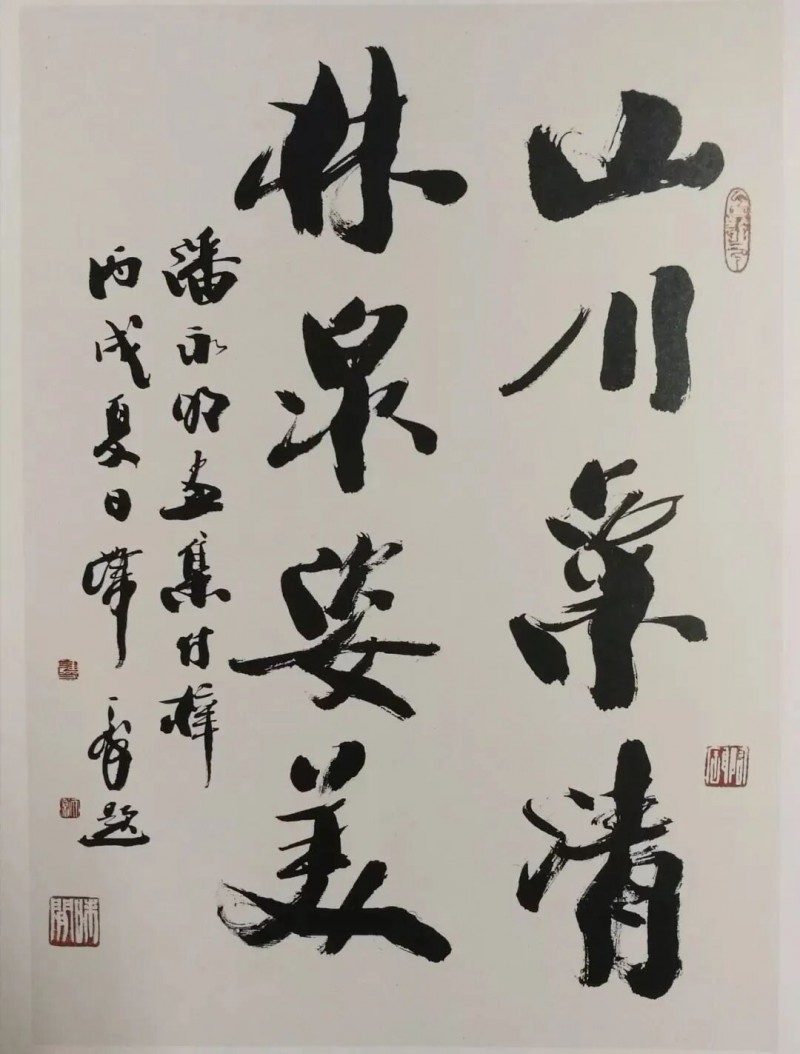 山川氣清
林泉姿美
潘永明畫集付梓
丙戌夏日 题